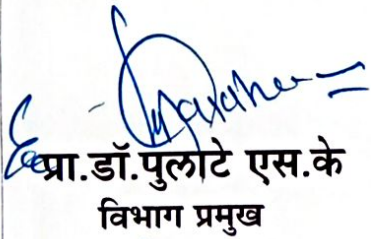 प्रा.डॉ.पुलाटे एस.के
विभाग प्रमुख